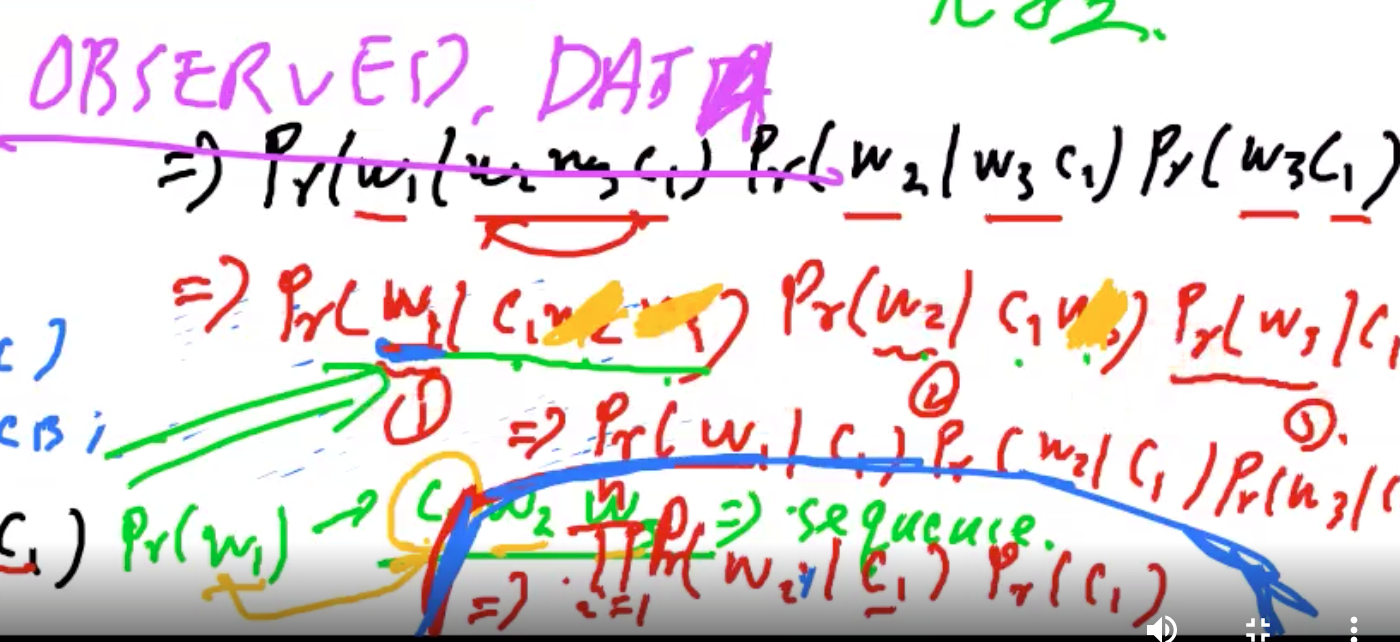 OBSERVED. DATA
=> Pr(w1 | w2 w3 c1) Pr(w2 | w3 c1) Pr(w3 c1)
=> Pr(w1 | c1 Pr(w2 | c1 Pr(w3 | c1
c)
① ② ③.
=> Pr(w1 | c1) Pr(w2 | c1) Pr(w3 | c
c1) Pr(w1) → c1 w2 w3 => sequence.
=> n ∏ i=1 Pr(wi | c1) Pr(c1)